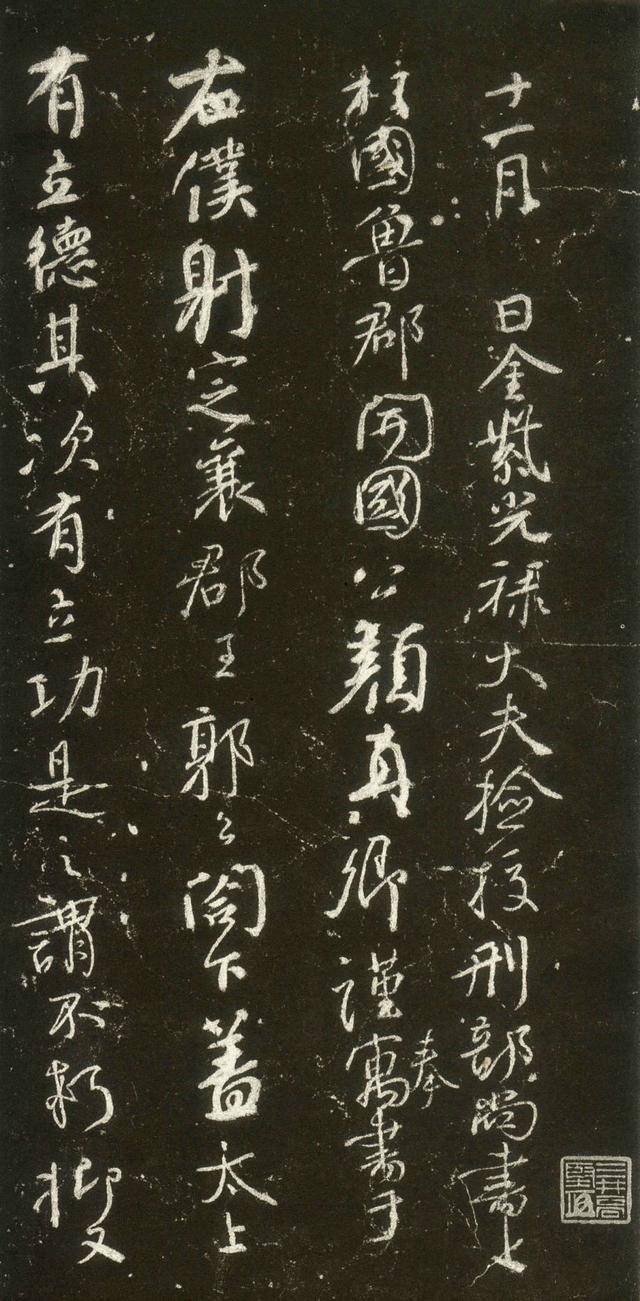 十一月 日金紫光祿大夫檢校刑部尚書上
柱國魯郡開國公顏真卿謹寓書于
奉
右僕射定襄郡王郭公閤下蓋太上
有立德其次有立功是之謂不朽抑又